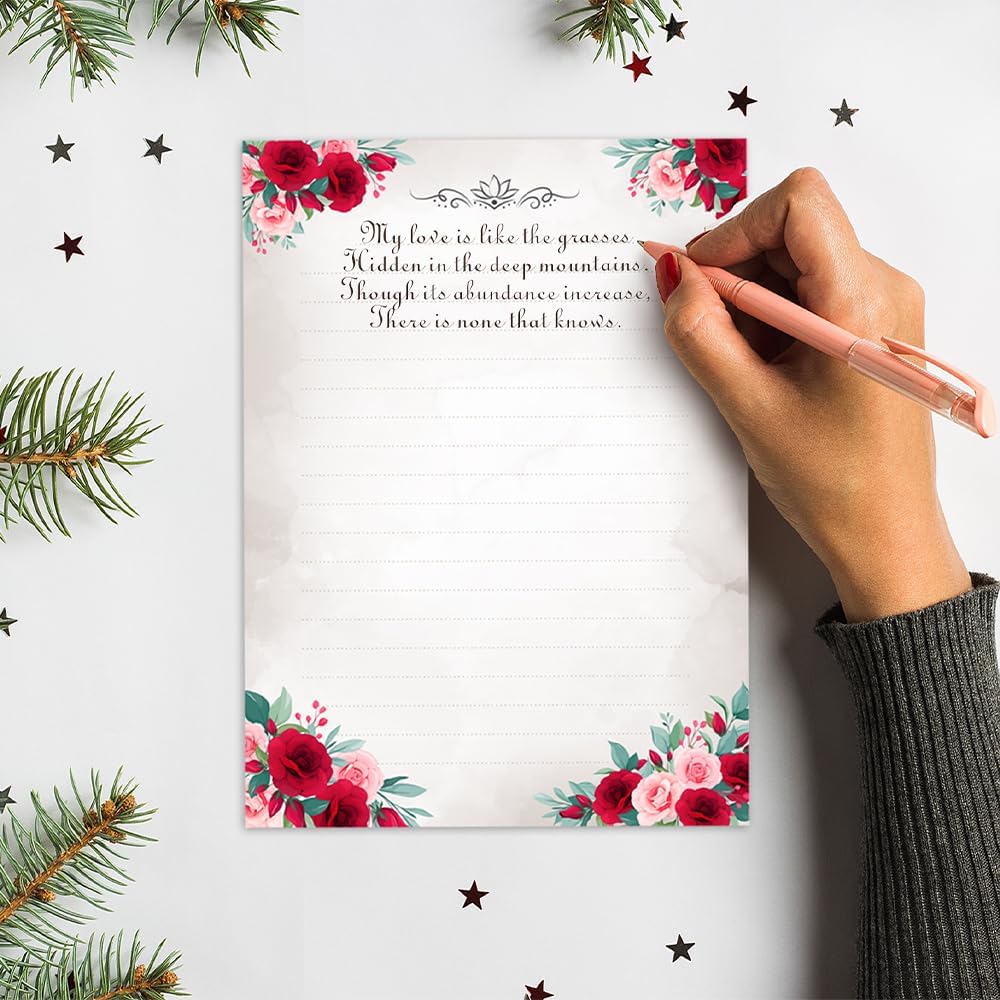 My love is like the grasses
Hidden in the deep mountains.
Though its abundance increase,
There is none that knows.